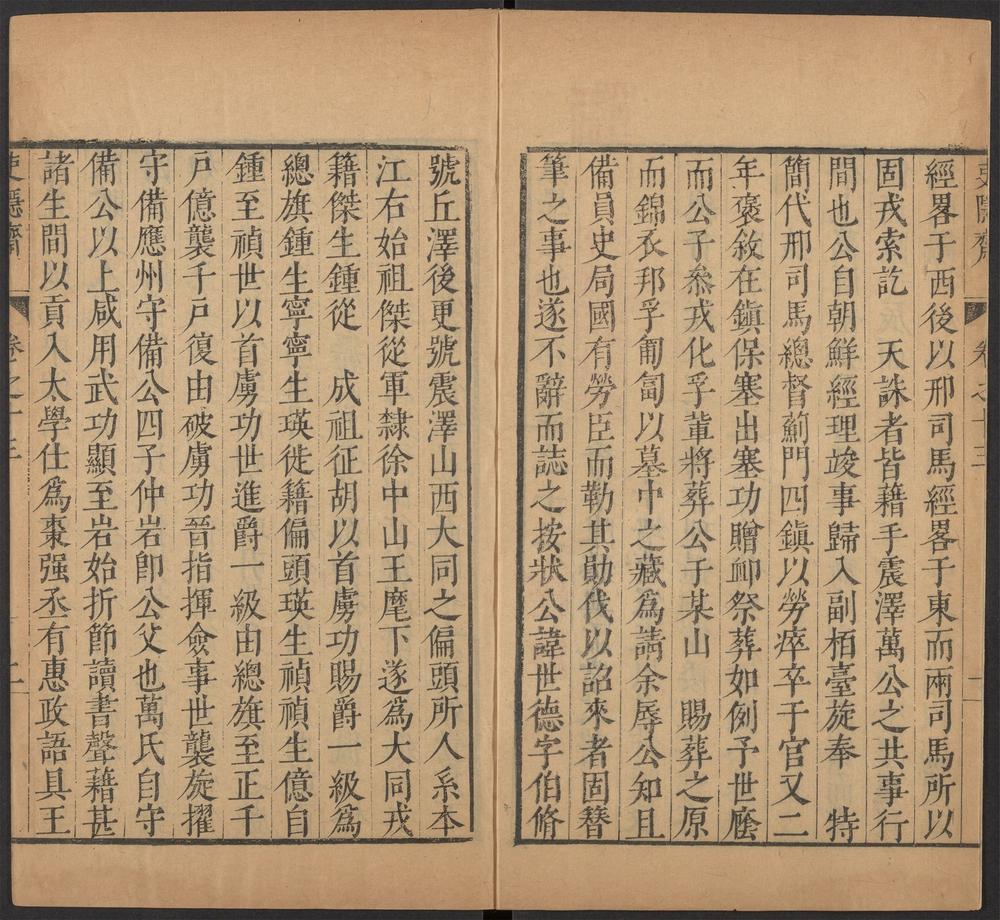 經畧于西後以邢司馬經畧于東而兩司馬所以
固戎索訖　天誅者皆藉手震澤萬公之共事行
間也公自朝鮮經理竣事歸入副栢臺旋奉　特
簡代邢司馬總督薊門四鎮以勞瘁卒于官又二
年褒敘在鎮保塞出塞功贈䘏祭葬如例予世廕
而公子叅戎化孚軰將葬公于某山　賜葬之原
而錦衣邦孚匍匐以墓中之藏爲請余辱公知且
備員史局國有勞臣而勒其勛伐以詔來者固簪
筆之事也遂不辭而誌之按狀公諱世德字伯脩
號丘澤後更號震澤山西大同之偏頭所人系本
江右始祖傑從軍隸徐中山王麾下遂爲大同戎
籍傑生鍾從　成祖征胡以首虜功賜爵一級爲
總旗鍾生寧寧生瑛徙籍偏頭瑛生禎禎生億自
鍾至禎世以首虜功世進爵一級由總旗至正千
戸億襲千戸復由破虜功晉指揮僉事世襲旋擢
守備應州守備公四子仲岩卽公父也萬氏自守
備公以上咸用武功顯至岩始折節讀書聲藉甚
諸生間以貢入太學仕爲棗强丞有惠政語具王
卷之十三
二